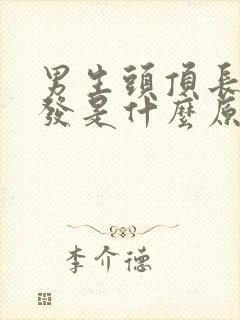 男生頭頂長
發是什麼原
李介德